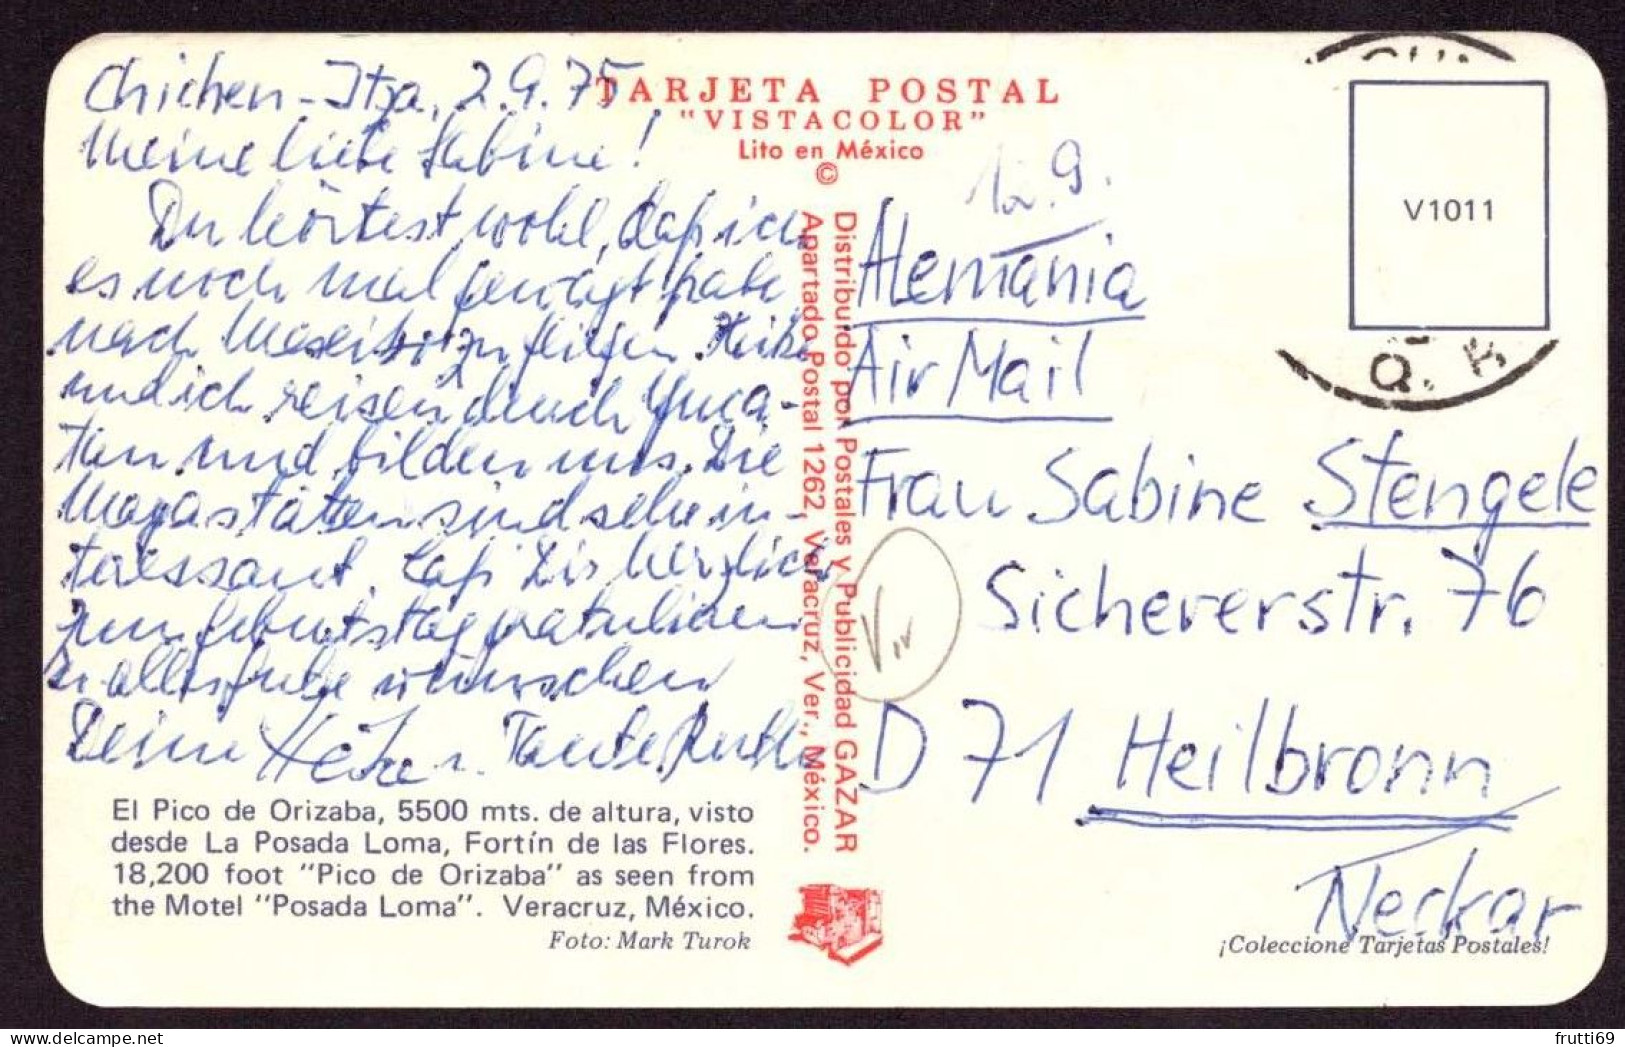 Chichen-Itza, 2.9.75
Meine liebe Sabine!
Du hörtest wohl, daß ich
es noch mal gewagt habe
nach Mexiko zu fliegen. Heike
und ich reisen durch Yuca-
tan und bilden uns. Die
Mayastätten sind sehr in-
teressant. Laß Dir herzlich
zum Geburtstag gratulieren
u. alles Gute wünschen
Deine Heike u. Tante Ruth
El Pico de Orizaba, 5500 mts. de altura, visto
desde La Posada Loma, Fortín de las Flores.
18,200 foot "Pico de Orizaba" as seen from
the Motel "Posada Loma". Veracruz, México.
Foto: Mark Turok
TARJETA POSTAL
"VISTACOLOR"
Lito en México
©
Distribuido por Postales y Publicidad GAZAR
Apartado Postal 1262, Veracruz, Ver., México.
12.9.
V1011
Q. R
Alemania
Air Mail
Frau Sabine Stengele
Sichererstr. 76
D 71 Heilbronn
Neckar
¡Coleccione Tarjetas Postales!
frutti69